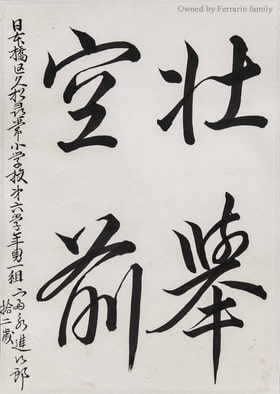 Owned by Ferrarin family
壮擧
空前
日本橋区久松尋常小学校第六学年男一組
進次郎
拾二歳